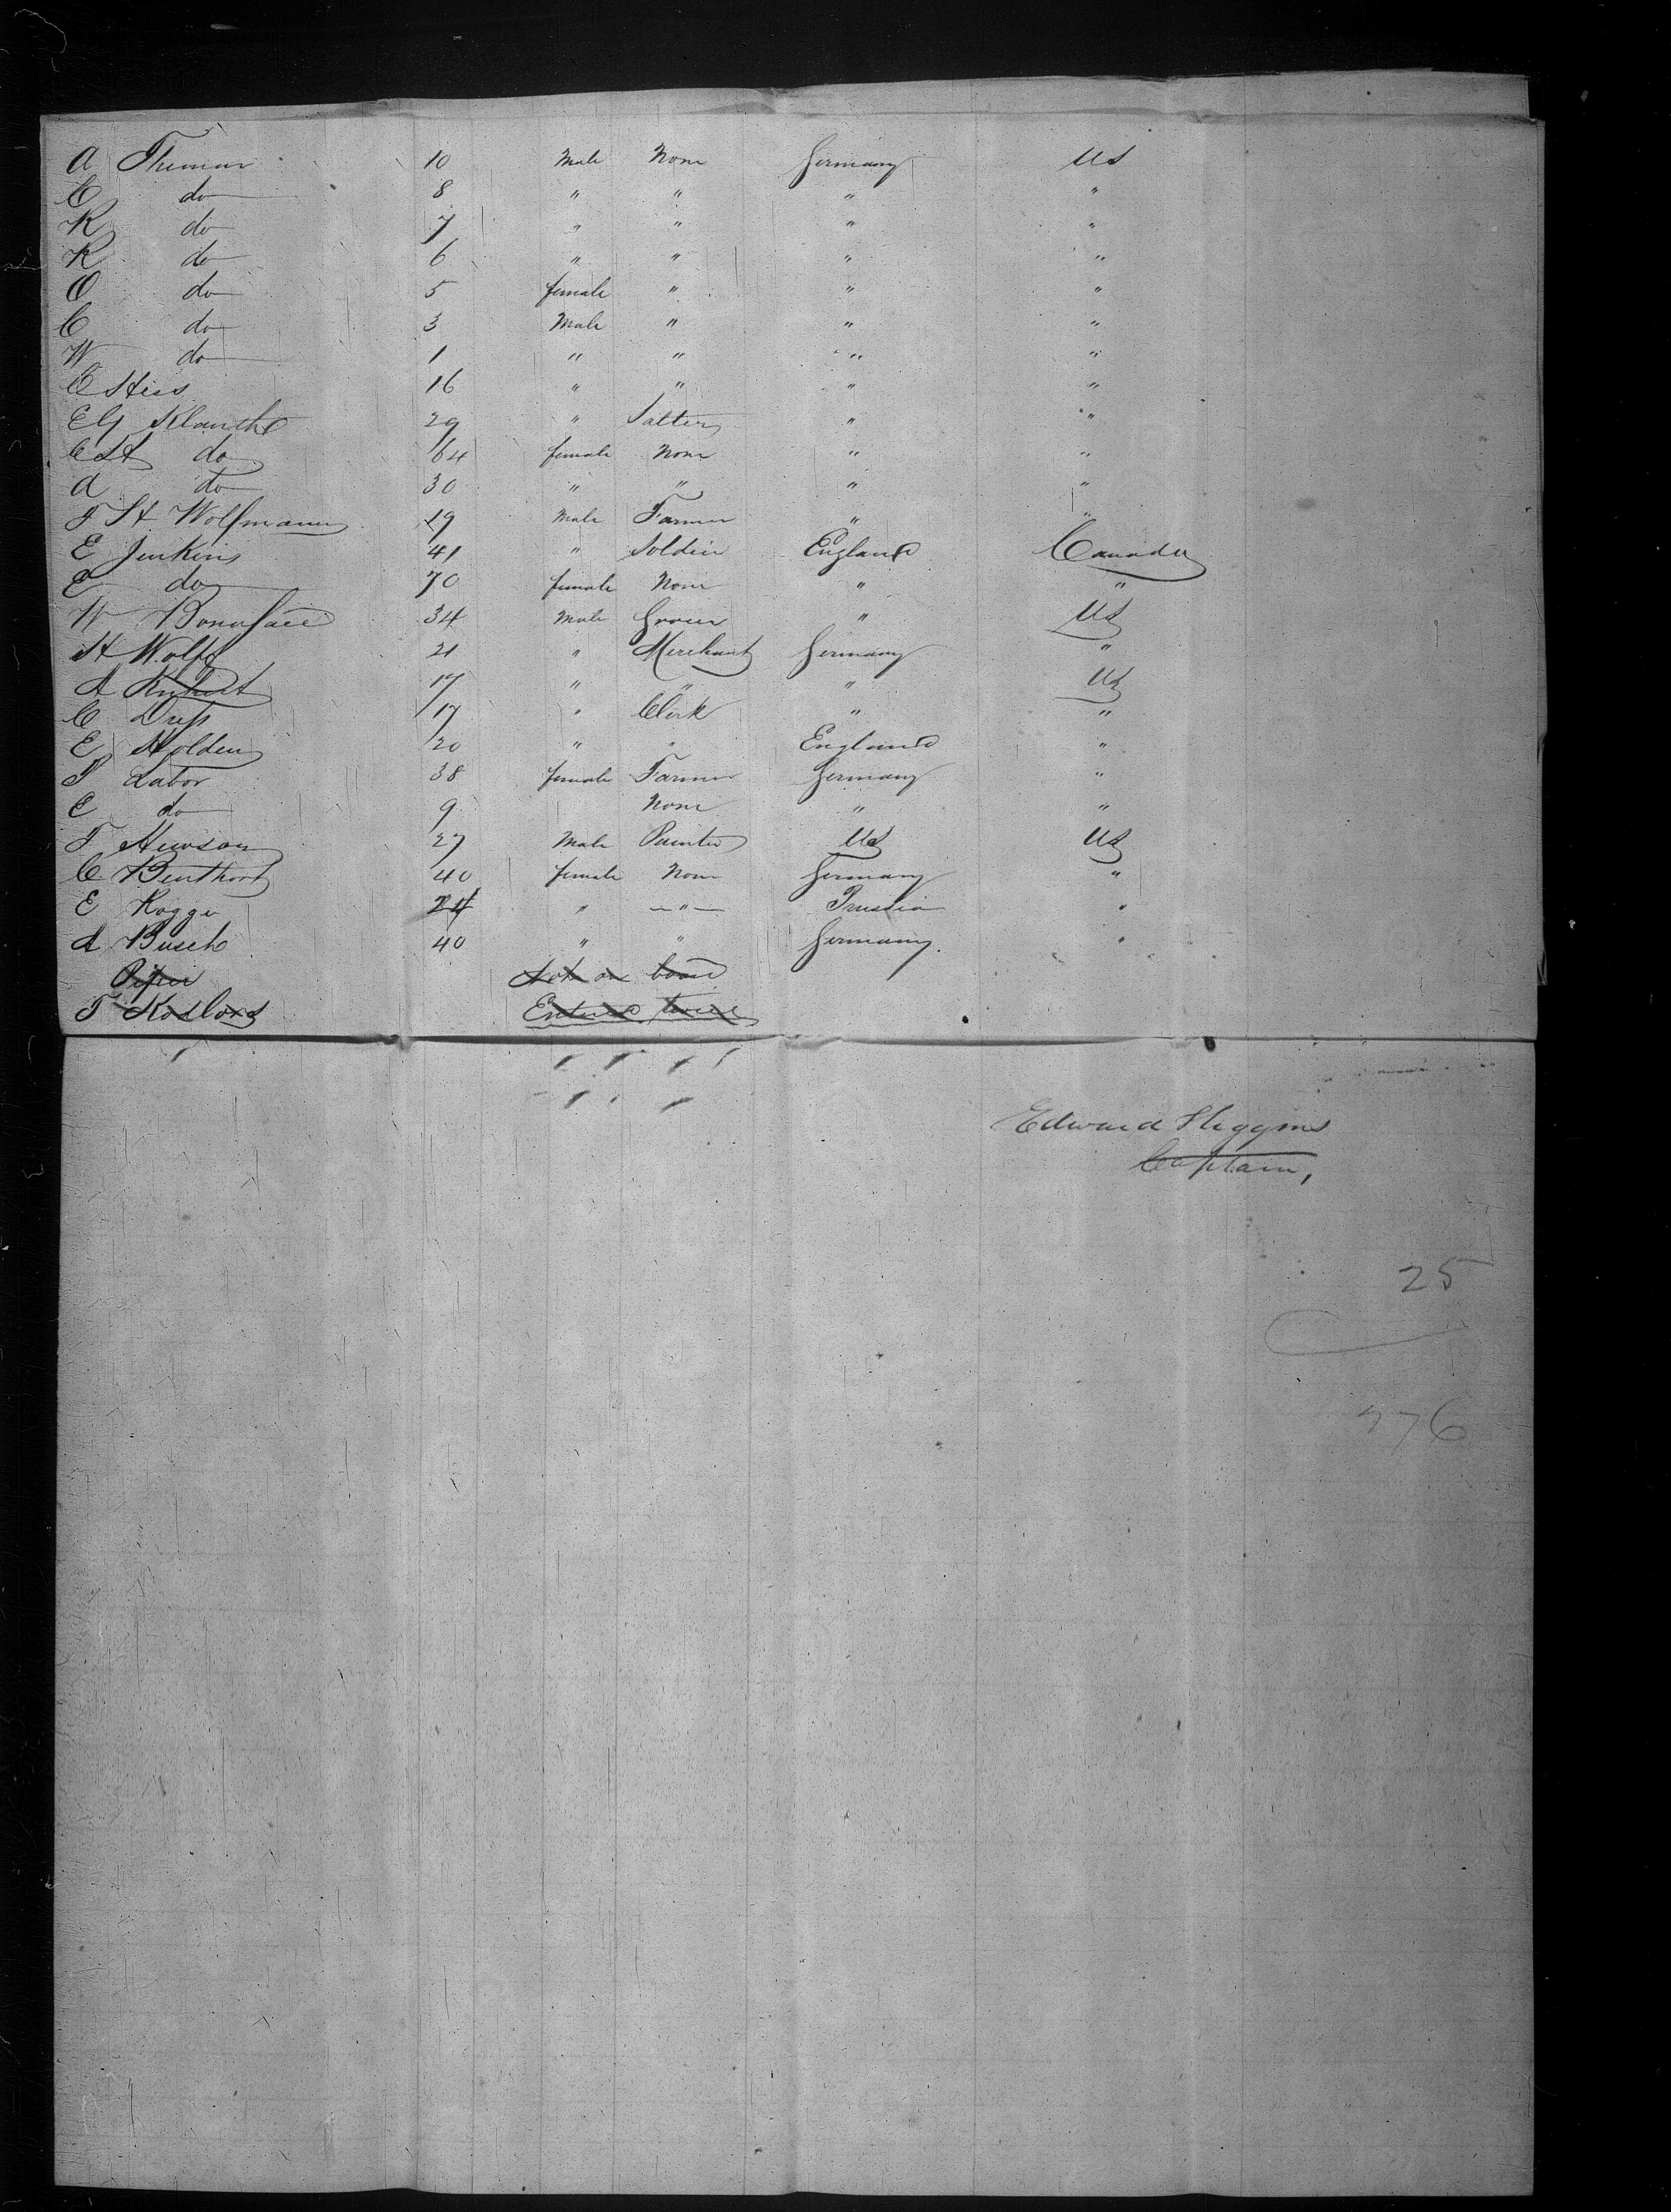 A Themar 10 Male None Germany US
C do 8 " " " "
K do 7 " " " "
K do 6 " " " "
O do 5 female " " "
C do 3 Male " " "
W do 1 " " " "
C Hiss 16 " " " "
E G Klauche 29 " Salter " "
C H do 64 female None " "
A do 30 " " " "
F H Wolfmann 19 Male Farmer " "
E Jenkins 41 " Soldier England Canada
E do 70 female None " "
W Boniface 34 Male Grocer " US
H Wolff 21 " Merchant Germany "
A 17 " " " US
C Dress 17 " Clerk " "
E Holden 20 " " England "
P Labor 38 female Farmer Germany "
E do 9 None " "
F Hewson 27 Male Painter US US
C Benthort 40 female None Germany "
E Kogge 24 " " Prussia "
A Busch 40 " " Germany "
Piper Not on board
F Koslord Entered twice
Edward Higgins
Captain,
25
776